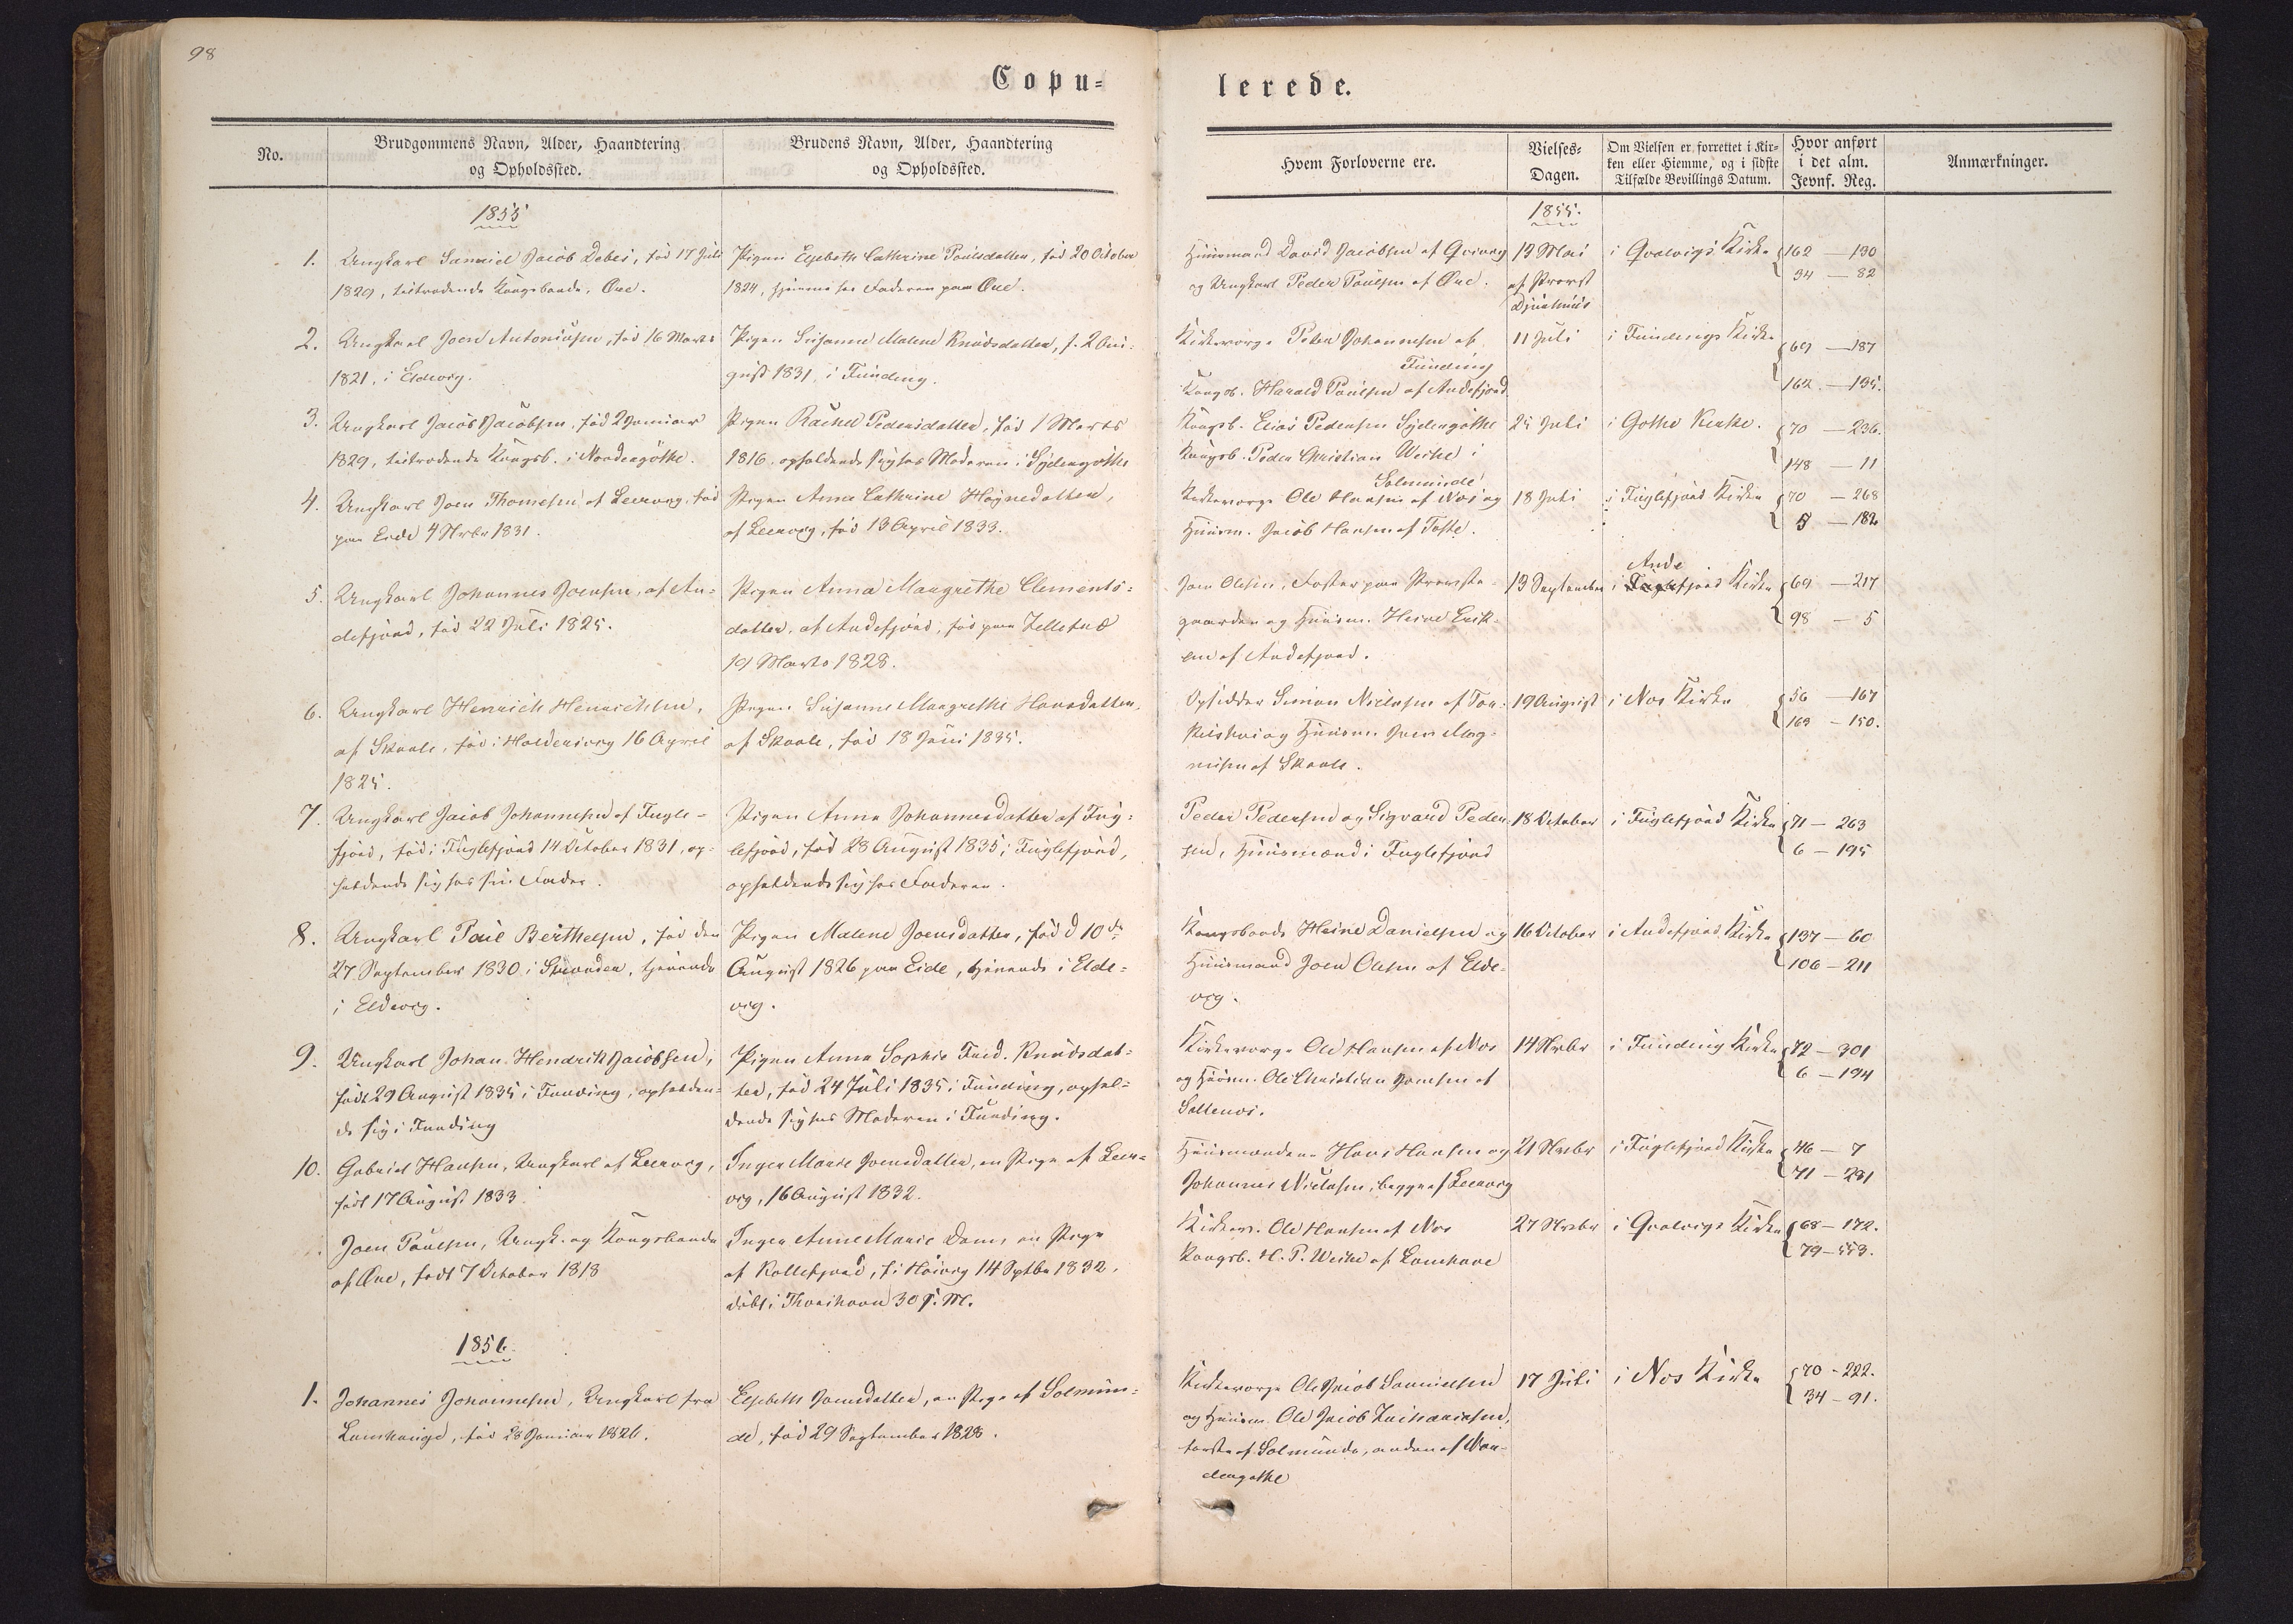 98
Copu=
lerede.
No.
Brudgommens Navn, Alder, Haandtering
og Opholdssted.
Brudens Navn, Alder, Haandtering
og Opholdssted.
Hvem Forloverne ere.
Vielses=
Dagen.
Om Vielsen er forrettet i Kir=
ken eller Hiemme, og i sidste
Tilfælde Bevillings Datum.
Hvor anført
i det alm.
Jevnf. Reg.
Anmærkninger.
1855
1855.
1. Ungkarl Samuel Jacob Debes, fød 17 Juli
1829, tiltrædende Kongsbonde, Øre.
Pigen Elsebeth Cathrine Poulsdatter, fød 20 October
1824, hjemme hos Faderen paa Øre.
Huusmand David Jacobsen af Qvivig
og Ungkarl Peder Poulsen af Øre.
13 Mai
af Provst
Djurhuus
i Qvalvigs Kirke
162 — 130
34 — 82
2. Ungkarl Joen Antoniusen, fød 16 Marts
1821, i Eldevig.
Pigen Susanne Malene Knudsdatter, f. 2 Au=
gust 1831, i Funding.
Kirkeværge Peter Johannesen af
Funding
Kongsb. Harald Poulsen af Andefjord
11 Juli
i Fundings Kirke
69 — 187
162. — 135.
3. Ungkarl Jacob Jacobsen, fød 2 Januar
1829, tiltrædende Kongsb. i Nordregøthe.
Pigen Rachel Pedersdatter, fød 1 Marts
1816, opholdende sig hos Moderen i Sydregøthe
Kongsb. Elias Pedersen Sydregøthe
Kongsb. Peder Christian Weihe i
Solmunde
25 Juli
i Gothe Kirke.
70 — 236.
148 — 11
4. Ungkarl Joen Thomesen af Leervig, fød
paa Eide 4 Nvbr 1831.
Pigen Anne Cathrine Høgnedatter,
af Leervig, fød 13 April 1833.
Kirkeværge Ole Hansen af Næs og
Huusm. Jacob Hansen af Tofte.
18 Juli
i Fuglefjord Kirke
70 — 268
5 — 182
5. Ungkarl Johannes Joensen, af An=
defjord, fød 22 Juli 1825.
Pigen Anna Maugrethe Clements=
datter, af Andefjord, fød paa Zelletræ
19 Marts 1828.
Joen Olesen, Foster paa Præste=
gaarden og Huusm. Heine Erik=
sen af Andefjord.
13 September
Ande
i Fuglefjord Kirke
69 — 217
98 — 5
6. Ungkarl Henrich Henrichsen,
af Skaale, fød i Haldersvig 16 April
1825.
Pigen Susanne Maugrethe Hansdatter,
af Skaale, fød 18 Juni 1835.
Opsidder Simon Niclasen af
og Huusm. Joen Mag=
nusen af Skaale.
19 August
i Næs Kirke
56 — 167
163 — 150.
7. Ungkarl Jacob Johannesen af Fugle=
fjord, fød i Fuglefjord 14 October 1831, op=
holdende sig hos sin Fader.
Pigen Anna Johannesdatter af Fug=
lefjord, fød 28 August 1835 i Fuglefjord,
opholdende sig hos Faderen.
Peder Pedersen og Sigvard Peder=
sen, Huusmænd i Fuglefjord
18 October
i Fuglefjord Kirke
71 — 263
6 — 195
8. Ungkarl Poul Berthelsen, fød den
27 September 1830 i Strænder, tjenende
i Eldevig.
Pigen Malene Joensdatter, fød d 10de
August 1826 paa Eide, tjenende i Elde=
vig.
Kongsbonde Heine Danielsen og
Huusmand Joen Olesen af Elde=
vig.
16 October
i Andefjord Kirke
137 — 60
106 — 211
9. Ungkarl Johan Hendrik Jacobsen,
født 29 August 1835 i Funding, opholden=
de sig i Funding
Pigen Anna Sophie Frid. Knudsdat=
ter, fød 24 Juli 1835 i Funding, ophol=
dende sig hos Moderen i Funding.
Kirkeværge Ole Hansen af Næs
og Huusm. Ole Christian Joensen af
Saltenæs.
14 Nvbr
i Funding Kirke
72 — 301
6 — 194
10. Gabriel Hansen, Ungkarl af Leervig,
født 17 August 1833.
Inger Marie Joensdatter, en Pige af Leer=
vig, 16 August 1832.
Huusmændene Hans Hansen og
Johannes Niclasen, begge af Leervig
21 Nvbr
i Fuglefjord Kirke
46 — 7
71 — 291
Joen Poulsen, Ungk. og Kongsbonde
af Øre, født 7 October 1818
Inger Anne Marie Dam, en Pige
af Kollefjord, f. i Hoivig 14 Sptbr 1832,
døbt i Thorshavn 30 s. M.
Kirkev. Ole Hansen af Næs
Kongsb. H. P. Weihe af Lamhave
27 Nvbr
i Qvalvigs Kirke
68 — 172.
79 — 553.
1856.
1. Johannes Johannesen, Ungkarl fra
Lamhauge, fød 28 Januar 1826.
Elsebeth Joensdatter, en Pige af Solmun=
de, fød 29 September 1828.
Kirkeværge Ole Jacob Samuelsen
og Huusm. Ole Jacob Zachariasen,
første af Solmunde, anden af Nor=
dregøthe
17 Juli
i Næs Kirke
70 - 222.
34 - 91.